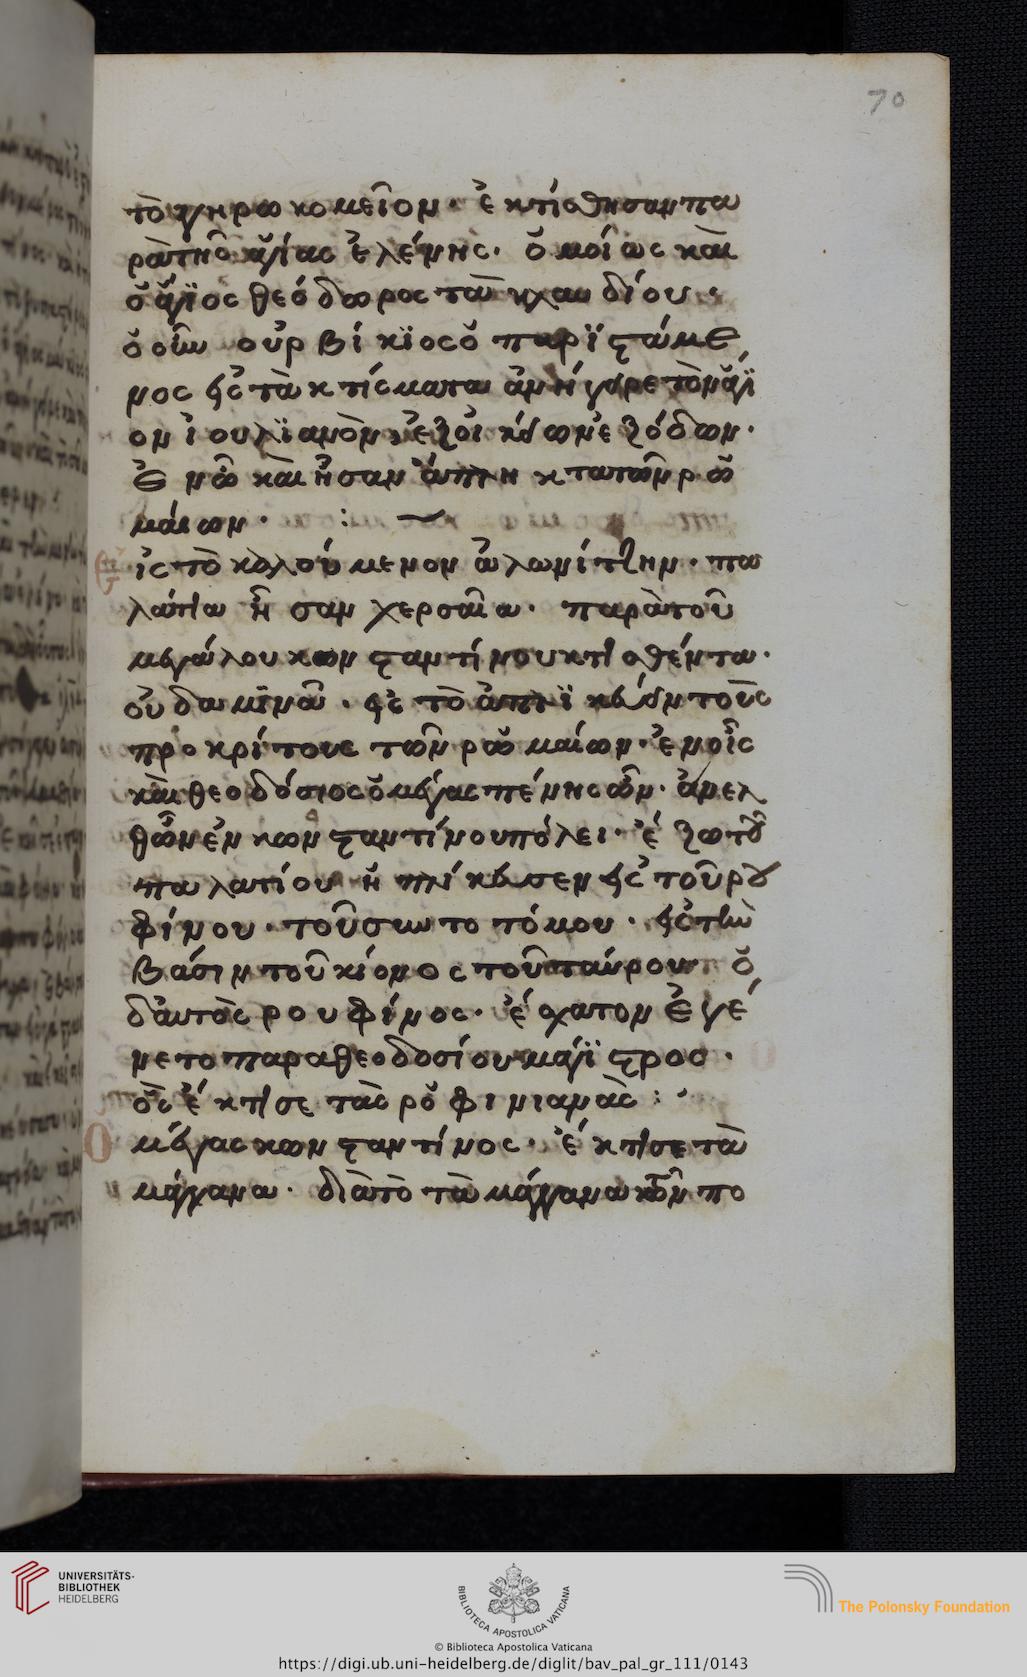 70
τὸ γηρωκομεῖον· ἐκτίσθησαν πα
ρὰ τῆς ἁγίας ἑλένης· ὁμοίως καὶ
ὁ ἅγιος θεόδωρος τὰ κλαυδίου·
ὁ οὖν οὐρβίκιος ὁ παρϊστάμε
νος εἰς τὰ κτίσματα ἀνήγειρε τὸν ἅγϊ
ον ἰουλϊανὸν
ἐν ῶ καὶ ἦσαν
μαίων· : ~
εἰς τὸ καλούμενον ἀλωνίτζην· πα
λάτια ἦσαν χερσαῖα· παρὰ τοῦ
μεγάλου κωνσταντίνου κτισθέντα·
οὐδαμϊνὰ· εἰς τὸ τοὺς
προκρίτους τῶν ρωμαίων· ἐν οἷς
καὶ θεοδόσιος ὁ μέγας πένης ὢν· ἀνελ
θὼν ἐν κωνσταντίνουπόλει· ἔξω τοῦ
παλατίου εἰς τοῦ ρου
φίνου· τοῦ σωτοτόκου· εἰς τὴν
βάσιν τοῦ κίονος τοῦ ταύρου ὁ
δ αυτὸς ρουφίνος· ἔσχατον ἐγέ
νετο παρα θεοδοσίου μάγϊστρος·
ὃς ἔκτησε τὰς ρουφινιανὰς :
ὁ μέγας κωνσταντίνος· ἔκτησε τὰ
μάγγανα· διὰ τὸ τὰ μάγγανα κεῖν πο
UNIVERSITÄTS-
BIBLIOTHEK
HEIDELBERG
BIBLIOTECA APOSTOLICA VATICANA
© Biblioteca Apostolica Vaticana
The Polonsky Foundation
https://digi.ub.uni-heidelberg.de/diglit/bav_pal_gr_111/0143